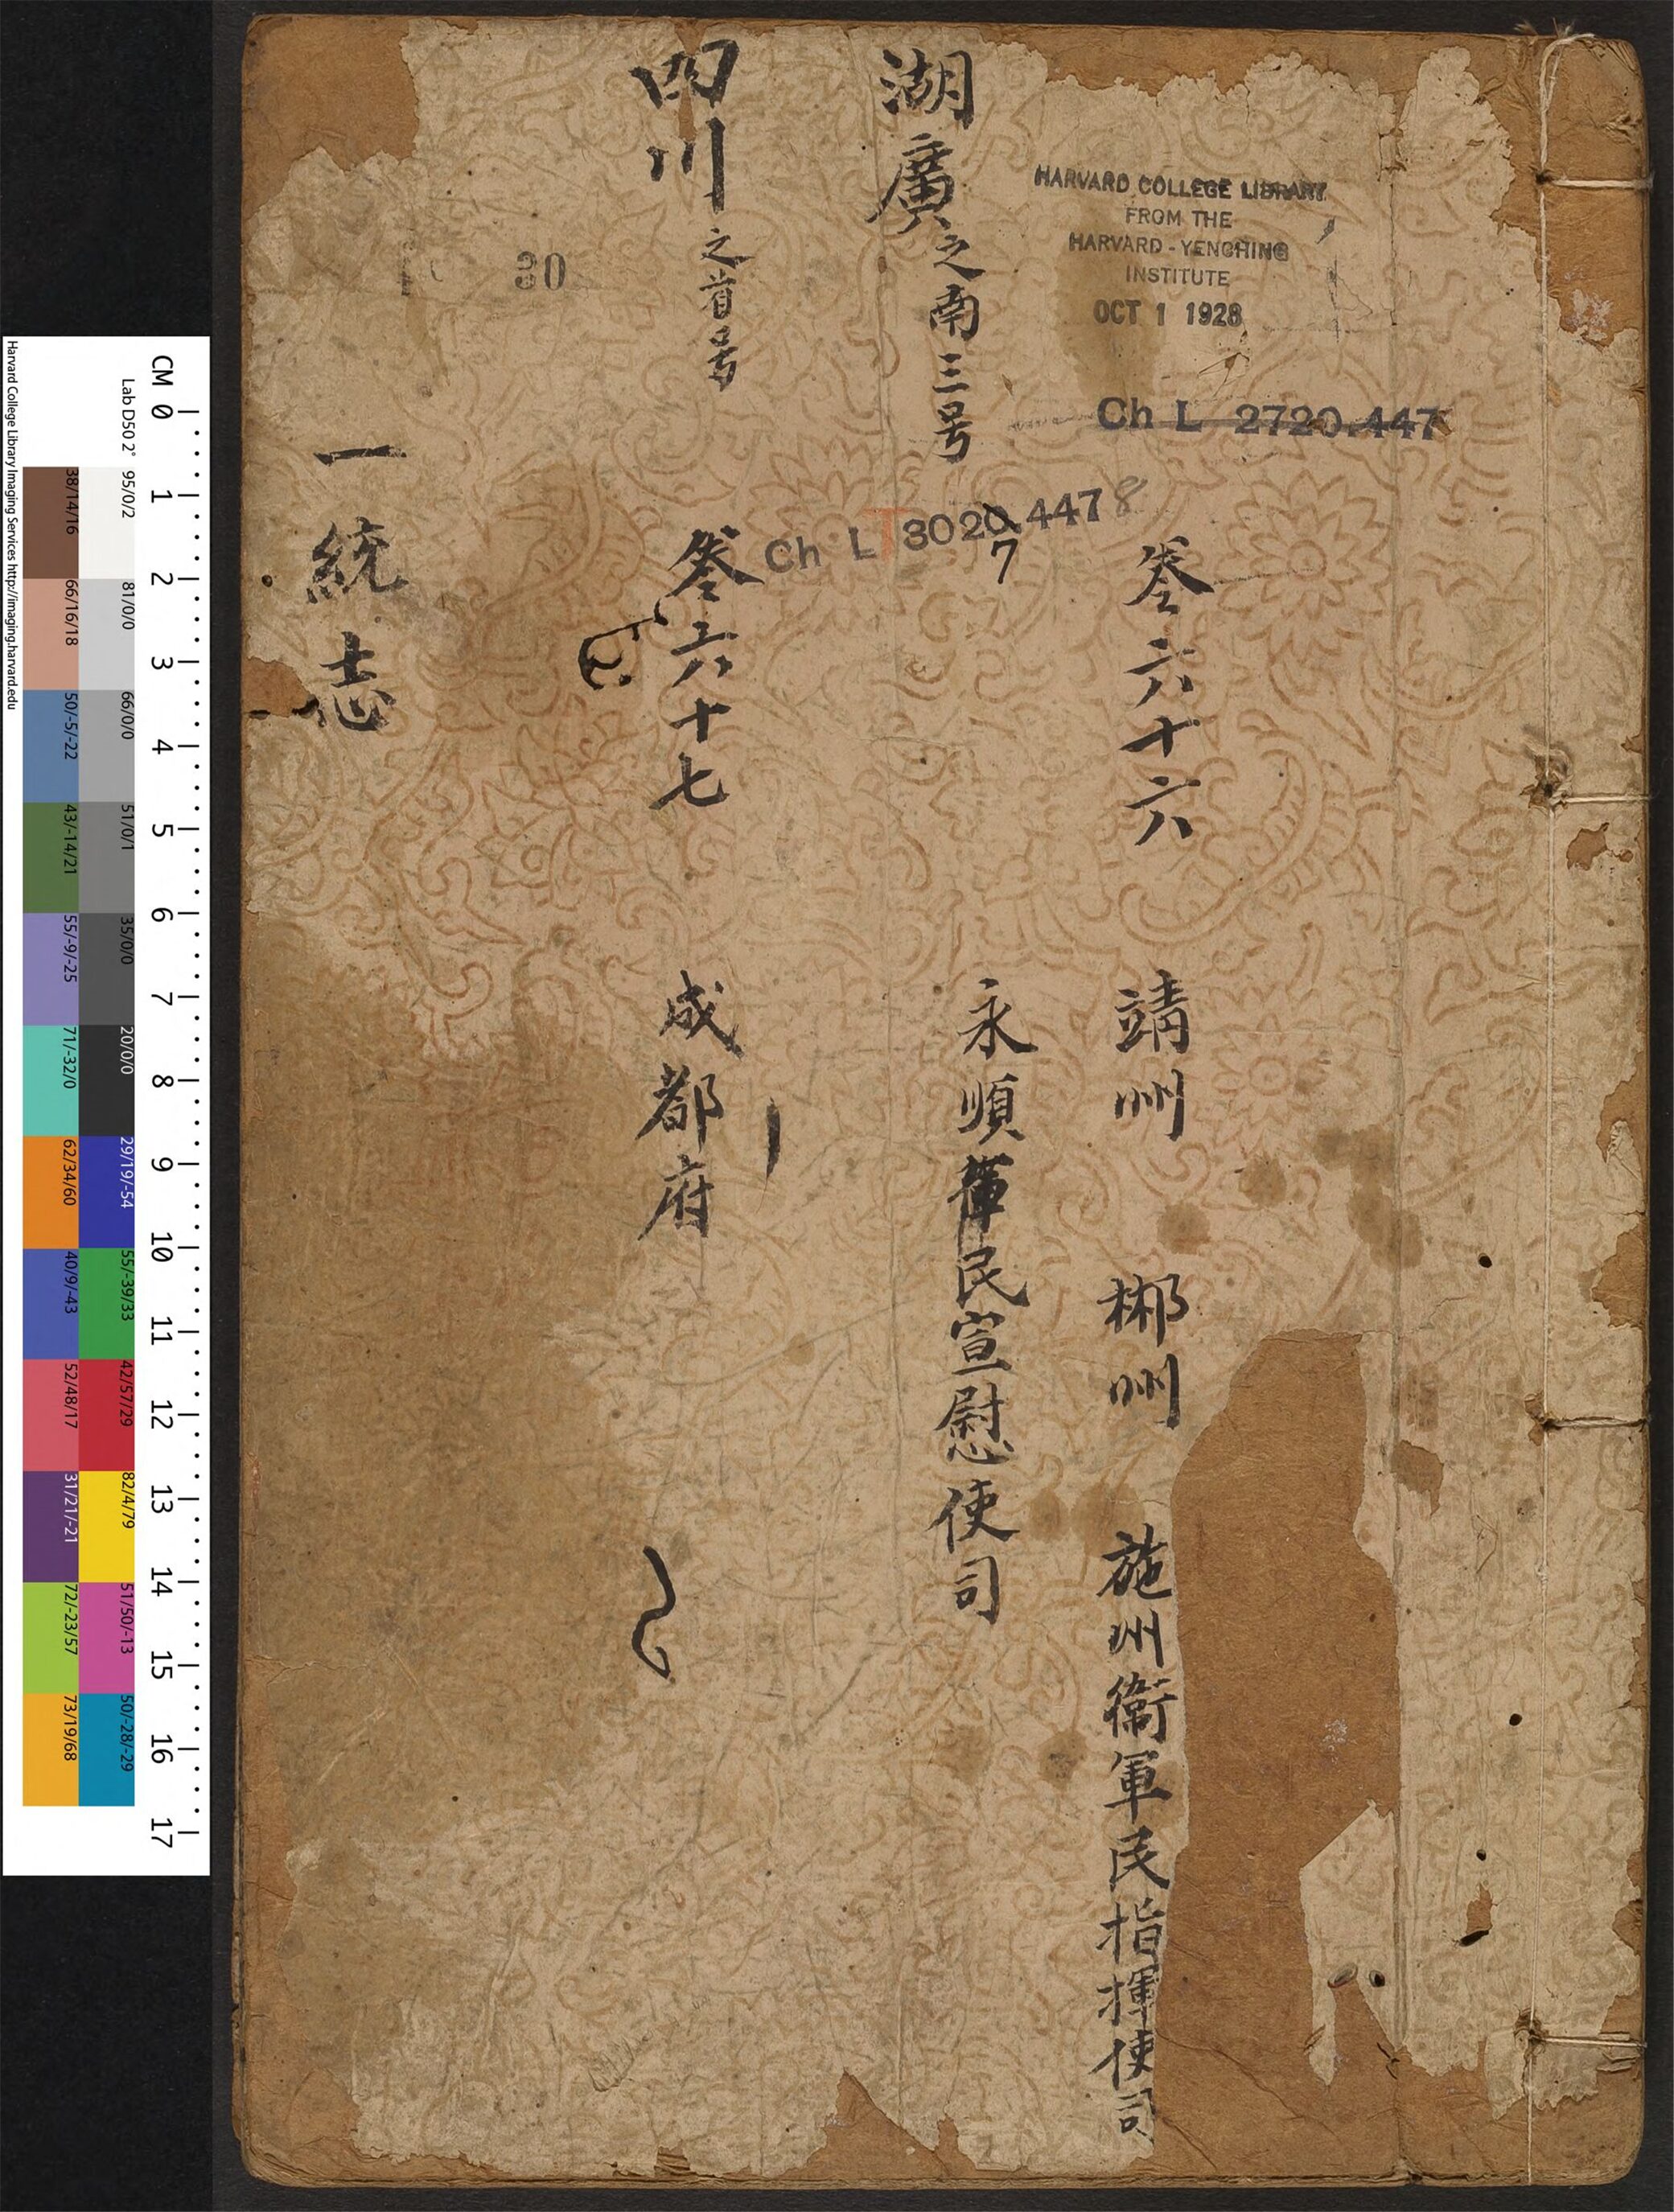 HARVARD COLLEGE LIBRARY
FROM THE
HARVARD-YENCHING
INSTITUTE
OCT 1 1928
Ch L 2720.447
Ch LT 3020.4478
7
30
湖廣之南三号
卷六十六
靖州 郴州 施州衛軍民指揮使司
永順軍民宣慰使司
四川之首号
卷六十七
成都府
一統志
CM 0 1 2 3 4 5 6 7 8 9 10 11 12 13 14 15 16 17
Lab D50 2°
95/0/2
81/0/0
66/0/0
51/0/1
35/0/0
20/0/0
29/19/-54
55/-39/33
42/57/29
82/4/79
51/50/-13
50/-28/-29
38/14/16
66/16/18
50/-5/-22
43/-14/21
55/-9/-25
71/-32/0
62/34/60
40/9/-43
52/48/17
31/21/-21
72/-23/57
73/19/68
Harvard College Library Imaging Services http://imaging.harvard.edu